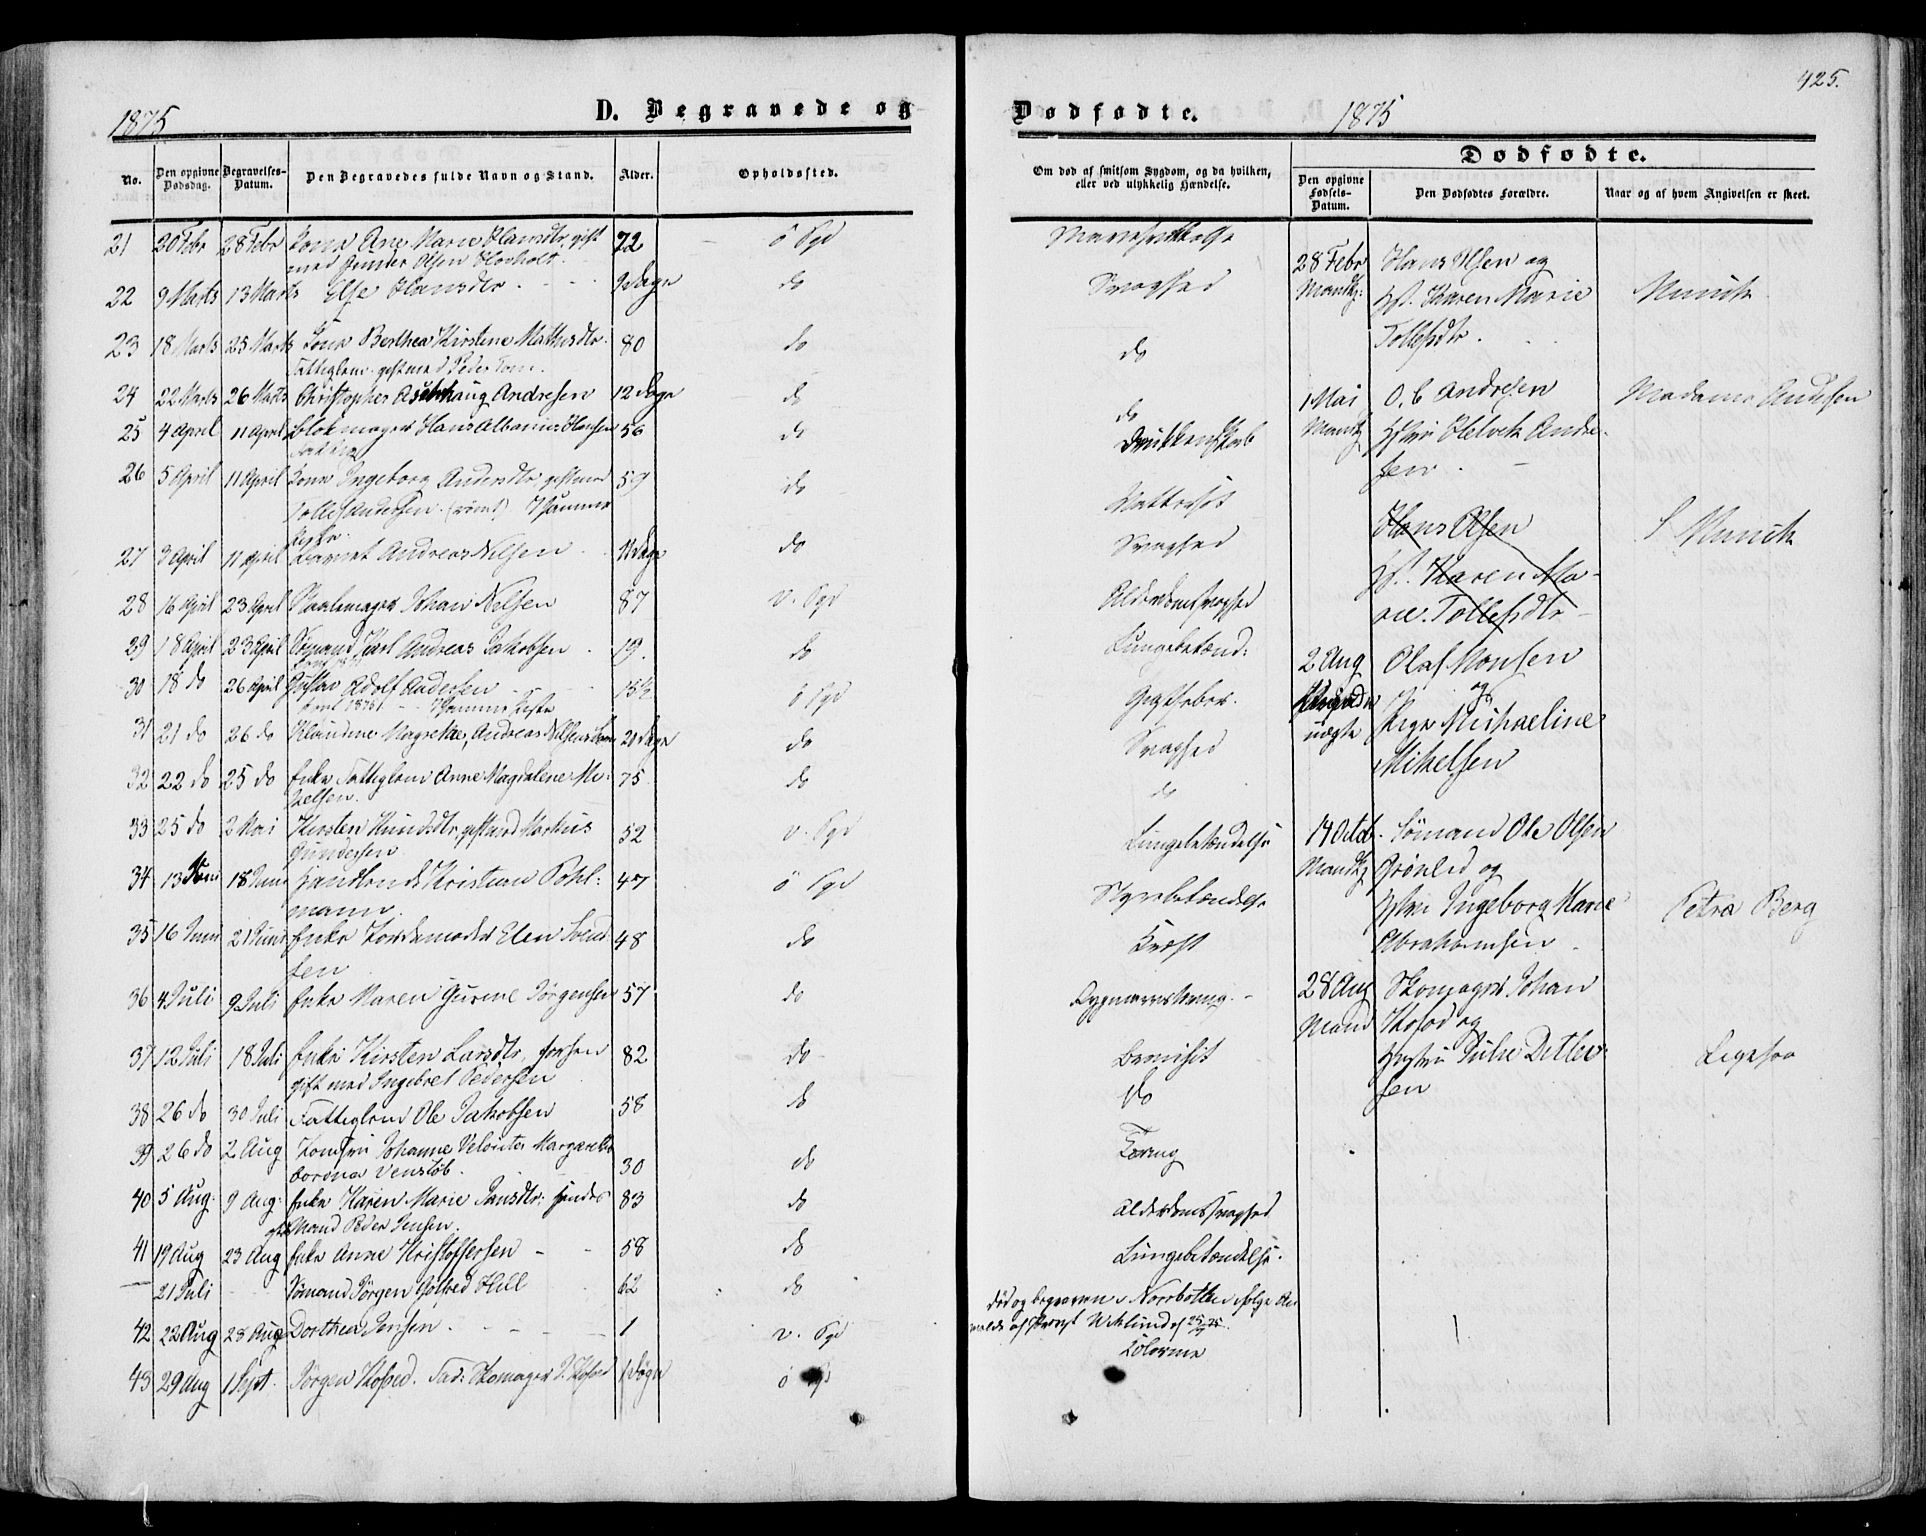 1875
D. Begravede og
No.
Den opgivne Dødsdag.
Begravelses-Datum.
Den Begravedes fulde Navn og Stand.
Alder.
Opholdssted.
21 20 Febr 28 Febr Kone Ane Marie Hansdtr, gift 72 ö Sgd
med Gunder Olsen
22 9 Marts 13 Marts Else Hansdtr 9 Dage do
23 18 Marts 25 Marts Kone Berthea Kirstine Mathisdtr. 80 do
Fattiglem. gift med Peder
24 22 Marts 26 Marts Christopher Andresen 12 Dage do
25 4 April 11 April Blokmager Hans Albanus Hansen 56 do
26 5 April 11 April Kone Ingeborg Andersdtr gift med 59 do
Tollef Andersen. (rømt)
27 3 April 11 April Barnet Andreas Nilsen 11 Dage do
28 16 April 23 April Johan Nilsen 87 v. Sgd
29 18 April 23 April Sømand Karl Andreas Jakobsen 19 do
30 18 do 26 April Gustav Adolf Andersen 15½ ö Sgd
31 21 do 26 do Klaudine Magrethe, Andreas Nilsens Barn 20 Dage do
32 22 do 25 do Enke Fattiglem Anne Magdalene Mi- 75 do
kelsen.
33 25 do 2 Mai Kirsten Knudsdtr, gift med Markus 52 v. Sgd
Gundersen
34 13 Juni 18 Juni Handlende Kristian Pohl- 47 ö Sgd
mann.
35 16 Juni 21 Juni Enke Jordemoder Elen Svend- 48 do
sen
36 4 Juli 9 Juli Enke Maren Gurine Jörgensen 57 do
37 12 Juli 18 Juli Enke Kirsten Larsdtr, forhen 82 do
gift med Ingebret Pedersen
38 26 do 30 Juli Fattiglem Ole Jakobsen 58 do
39 26 do 2 Aug Johanne Margarethe 30 do
Venstöb.
40 5 Aug. 9 Aug. Enke Karen Marie Jansdtr. hendes 83 do
Mand Peder Jensen.
41 19 Aug 23 Aug Enke Anne Kristoffersen 58 do
— 21 Juli Sömand Jörgen Hill 62 do
42 22 Aug 28 Aug Dorthea Jensen 1 v. Sgd
43 29 Aug 1 Sept. Jörgen Kofoed. Fad. Skomager J. Kofoed 1 Døgn ö Sgd
425.
Dødfødte.
1875
Om død af smitsom Sygdom, og da hvilken,
eller ved ulykkelig Hændelse.
Dødfødte.
Den opgivne Fødsels-Datum.
Den Dødfødtes Forældre.
Naar og af hvem Angivelsen er skeet.
Svaghed
do
do
Drukkenskab
Svaghed
Alderdomssvaghed
Lungebetænd:
Gigtfeber.
Svaghed
do
Lungebetændelse
Styrebetændelse
Kræft
Rygmarvstæring.
Bronchit
do
Tæring
Alderdomssvaghed
Lungebetændelse.
død og begraven i Norrbotten ifølge An-
melds af Provst Wiklund af 25/9 75.
Kolerine
28 Febr Hans Olsen og
Mandkj: Hst. Karen Marie Munch
Tollefsdtr.
1 Mai O. C. Andresen Madame Andersen
Mandkj Hstru Andre-
sen
Hans Olsen
Hst. Karen Ma- S Munch
rie. Tollefsdtr
2 Aug Olaf Monsen
og
uægte Pige Michaeline
Mikelsen
14 Octob. Sömand Ole Olsen
Mandkj Grönlid og
Hstru Ingeborg Marie Petra Berg
Abrahamsen
28 Aug Skomager Johan
Mand Kofod og
Hustru Julie Detlev- Ligesaa
sen